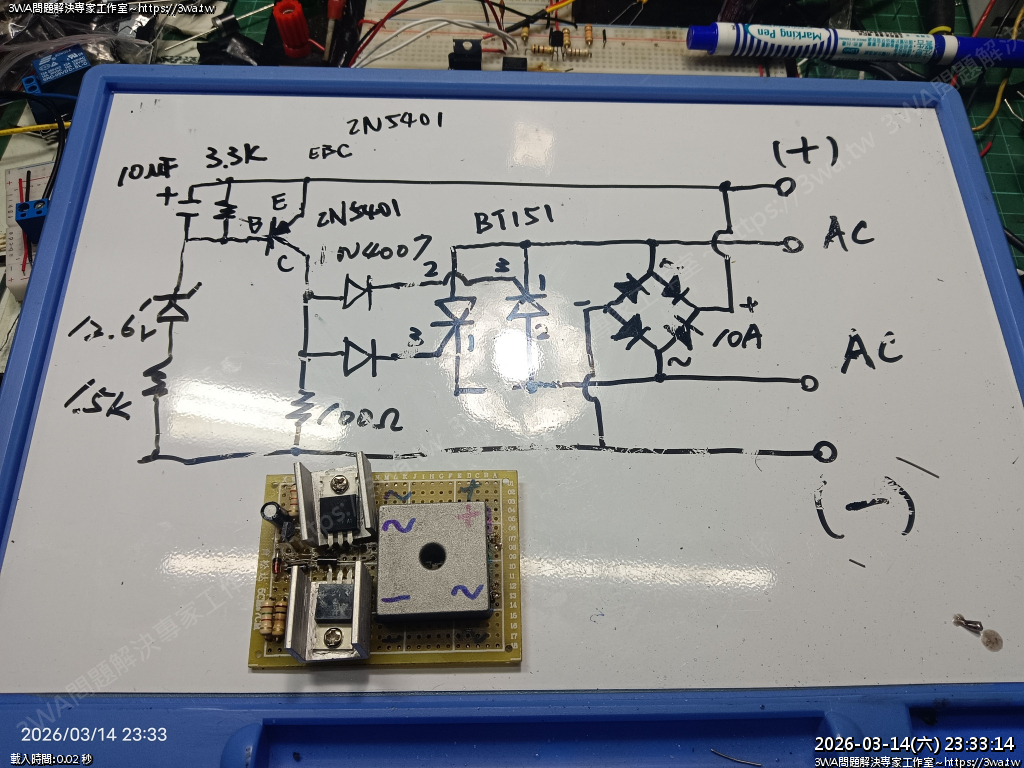 3WA問題解決專家工作室~https://3wa.tw
3WA問題解決專家工作室~https://3wa.tw
Marking Pen
2N5401
EBC
10uF
3.3K
+
E
B
C
2N5401
1N4007
BT151
(+)
AC
2
3
1
3
1
2
~
-
+
~
10A
AC
12.6V
1.5K
100Ω
(-)
2
+
2
+
1
2
2026/03/14 23:33
載入時間:0.02 秒
2026-03-14(六) 23:33:14
3WA問題解決專家工作室~https://3wa.tw